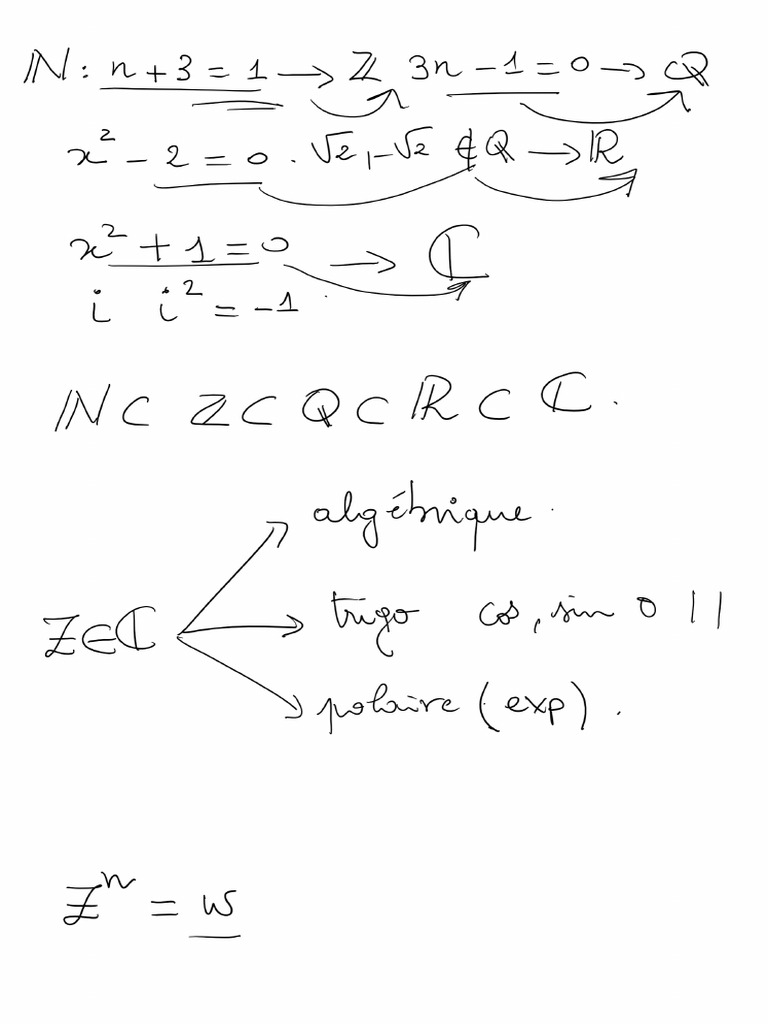 ℕ: n + 3 = 1 → ℤ 3n - 1 = 0 → ℚ
x² - 2 = 0 . √2, -√2 ∉ ℚ → ℝ
x² + 1 = 0 → ℂ
i i² = -1
ℕ ⊂ ℤ ⊂ ℚ ⊂ ℝ ⊂ ℂ.
algébrique.
Z ∈ ℂ
trigo cos, sin 0 | |
polaire (exp).
Zⁿ = w